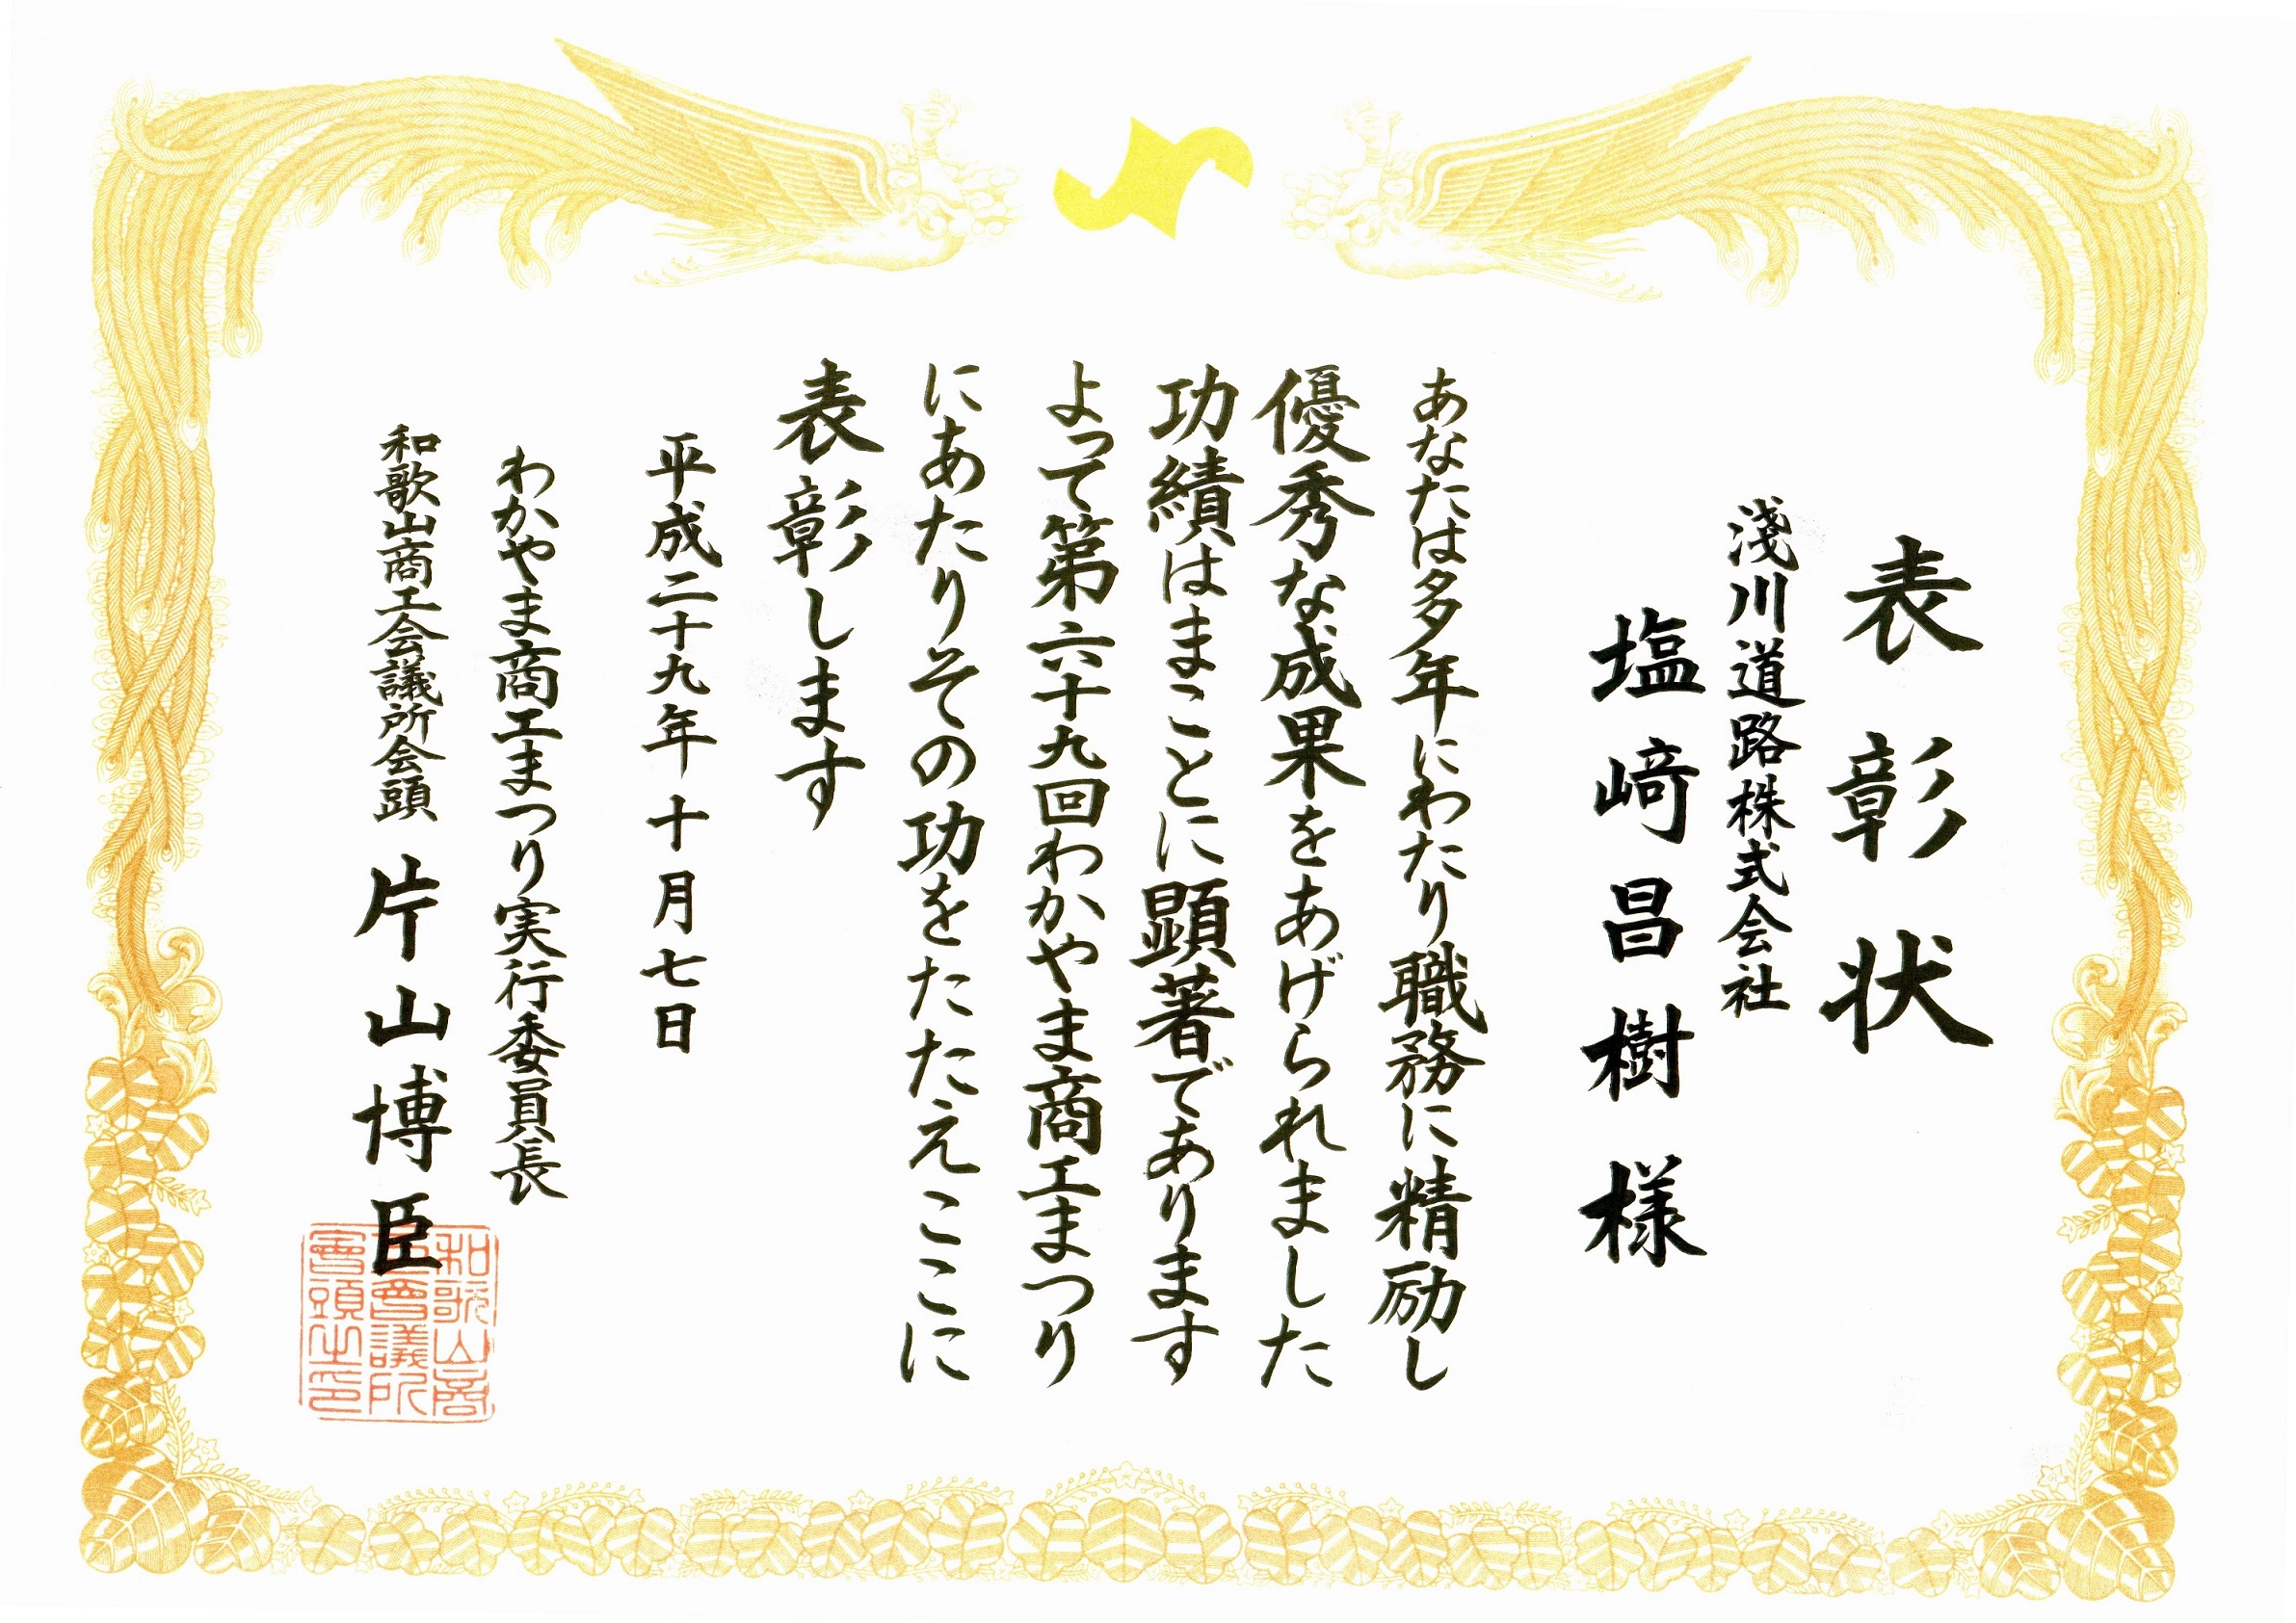 表彰状
淺川道路株式会社
塩﨑昌樹様
あなたは多年にわたり職務に精励し
優秀な成果をあげられました
功績はまことに顕著であります
よって第六十九回わかやま商工まつり
にあたりその功をたたえここに
表彰します
平成二十九年十月七日
わかやま商工まつり実行委員長
和歌山商工会議所会頭 片山博臣
和歌山商
工會議所
會頭之印